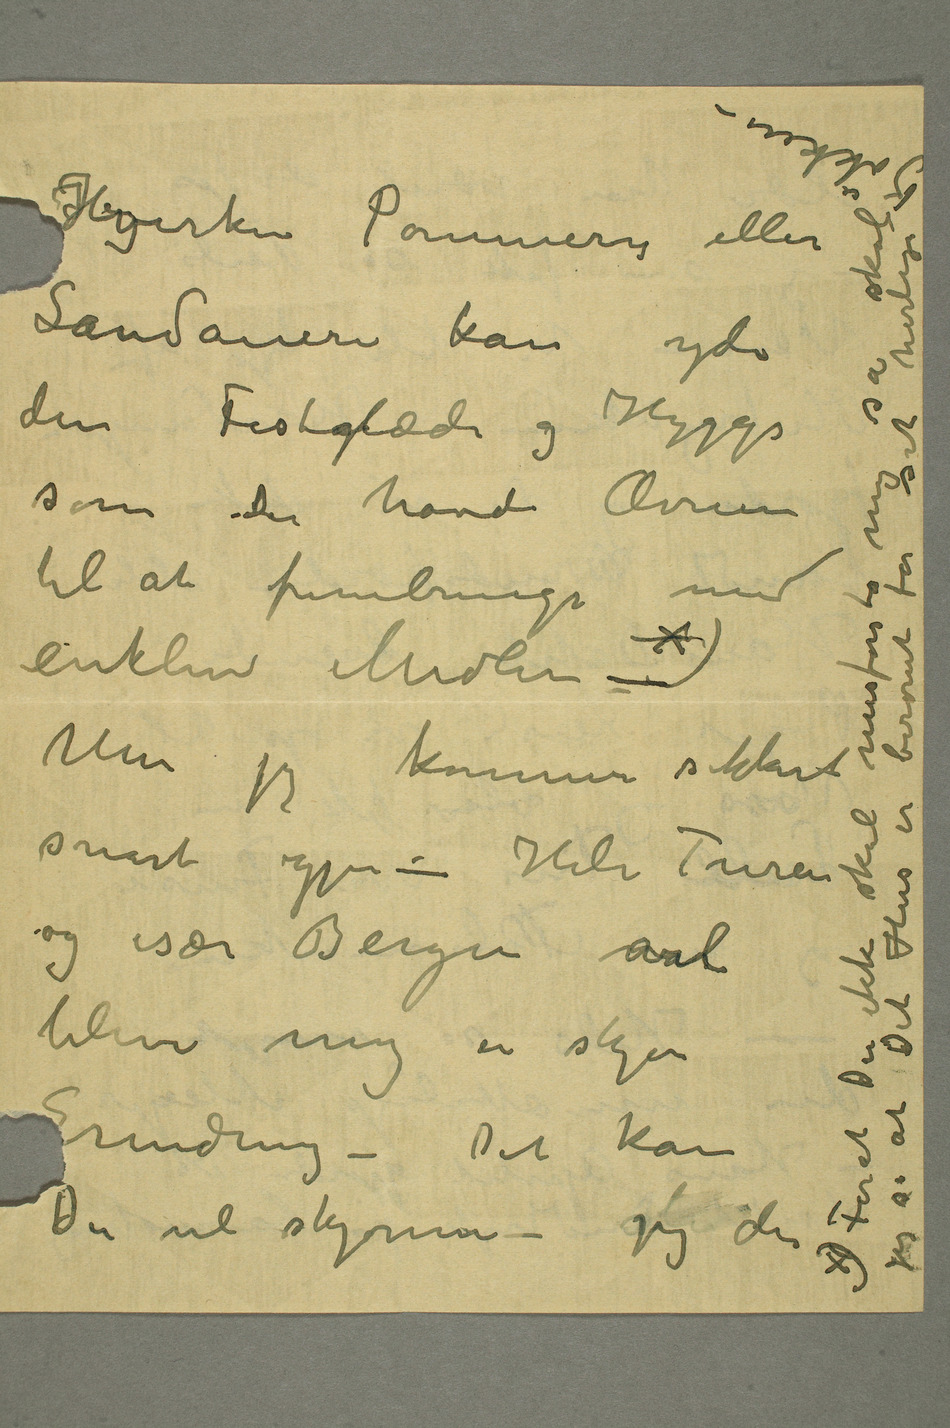 Hverken Pommery eller
Landauere kan yde
den Festglæde og Hygge
som Du havde Ævnen
til at frembringe med
enklere Midler – x)
Men jeg kommer sikkert
snart igjen – Hele Turen
og især Bergen vil
blive mig en skjøn
Erindring – Det kan
Du vel skjønne – jeg der
x) For at Du ikke skal misforstå mig så skal
jeg si at Det Hus er berømt for sit herlige
Køkken –